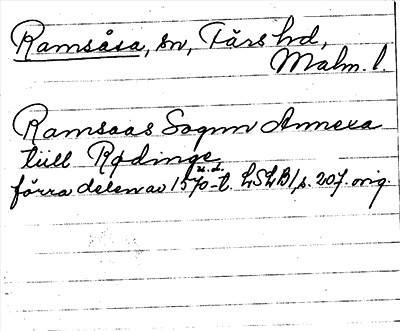 Ramsåsa, sn, Färs hd,
Malm. l.
Ramsaas Sognn Annexa
till Rødinge,
u.d.
förra delen av 1570-t. LSLB1, s. 207. orig.